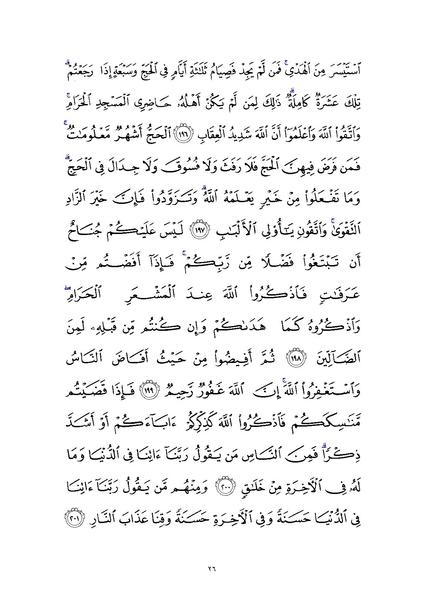 ٱسْتَيْسَرَ مِنَ ٱلْهَدْىِ ۚ فَمَن لَّمْ يَجِدْ فَصِيَامُ ثَلَـٰثَةِ أَيَّامٍ فِى ٱلْحَجِّ وَسَبْعَةٍ إِذَا رَجَعْتُمْ ۗ
تِلْكَ عَشَرَةٌ كَامِلَةٌ ۗ ذَٰلِكَ لِمَن لَّمْ يَكُنْ أَهْلُهُۥ حَاضِرِى ٱلْمَسْجِدِ ٱلْحَرَامِ ۚ
وَٱتَّقُوا۟ ٱللَّهَ وَٱعْلَمُوٓا۟ أَنَّ ٱللَّهَ شَدِيدُ ٱلْعِقَابِ ١٩٦ ٱلْحَجُّ أَشْهُرٌ مَّعْلُومَـٰتٌ ۚ
فَمَن فَرَضَ فِيهِنَّ ٱلْحَجَّ فَلَا رَفَثَ وَلَا فُسُوقَ وَلَا جِدَالَ فِى ٱلْحَجِّ ۗ
وَمَا تَفْعَلُوا۟ مِنْ خَيْرٍ يَعْلَمْهُ ٱللَّهُ ۗ وَتَزَوَّدُوا۟ فَإِنَّ خَيْرَ ٱلزَّادِ
ٱلتَّقْوَىٰ ۚ وَٱتَّقُونِ يَـٰٓأُو۟لِى ٱلْأَلْبَـٰبِ ١٩٧ لَيْسَ عَلَيْكُمْ جُنَاحٌ
أَن تَبْتَغُوا۟ فَضْلًا مِّن رَّبِّكُمْ ۚ فَإِذَآ أَفَضْتُم مِّنْ
عَرَفَـٰتٍ فَٱذْكُرُوا۟ ٱللَّهَ عِندَ ٱلْمَشْعَرِ ٱلْحَرَامِ ۖ
وَٱذْكُرُوهُ كَمَا هَدَىٰكُمْ وَإِن كُنتُم مِّن قَبْلِهِۦ لَمِنَ
ٱلضَّآلِّينَ ١٩٨ ثُمَّ أَفِيضُوا۟ مِنْ حَيْثُ أَفَاضَ ٱلنَّاسُ
وَٱسْتَغْفِرُوا۟ ٱللَّهَ ۚ إِنَّ ٱللَّهَ غَفُورٌ رَّحِيمٌ ١٩٩ فَإِذَا قَضَيْتُم
مَّنَـٰسِكَكُمْ فَٱذْكُرُوا۟ ٱللَّهَ كَذِكْرِكُمْ ءَابَآءَكُمْ أَوْ أَشَدَّ
ذِكْرًا ۗ فَمِنَ ٱلنَّاسِ مَن يَقُولُ رَبَّنَآ ءَاتِنَا فِى ٱلدُّنْيَا وَمَا
لَهُۥ فِى ٱلْـَٔاخِرَةِ مِنْ خَلَـٰقٍ ٢٠٠ وَمِنْهُم مَّن يَقُولُ رَبَّنَآ ءَاتِنَا
فِى ٱلدُّنْيَا حَسَنَةً وَفِى ٱلْـَٔاخِرَةِ حَسَنَةً وَقِنَا عَذَابَ ٱلنَّارِ ٢٠١
٢٦